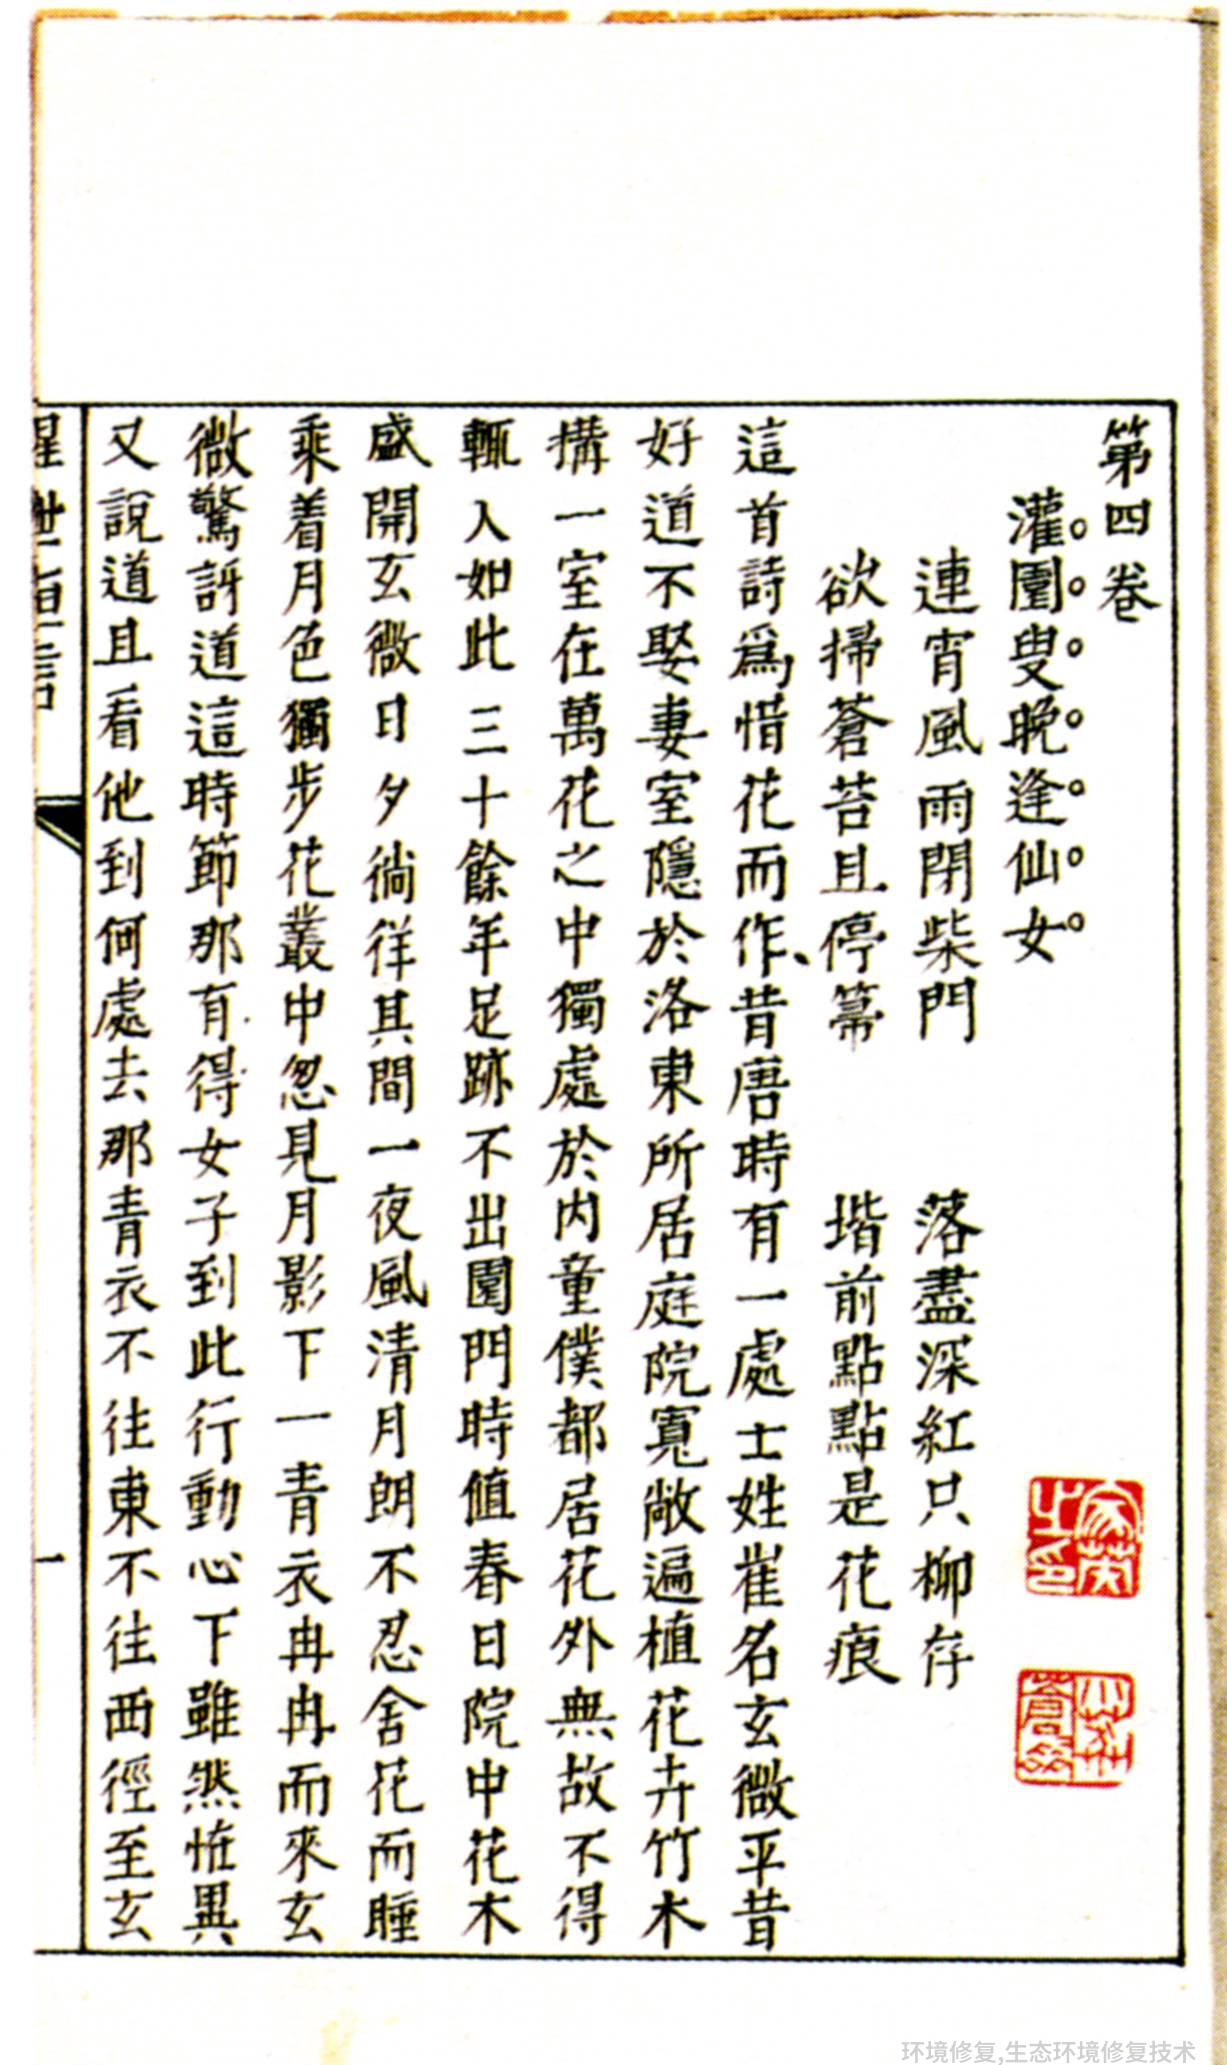 第四卷
灌園叟晚逢仙女
連宵風雨閉柴門　落盡深紅只柳存
欲掃蒼苔且停箒　堦前點點是花痕
這首詩爲惜花而作、昔唐時有一處士姓崔名玄微平昔
好道不娶妻室隱於洛東所居庭院寬敞遍植花卉竹木
搆一室在萬花之中獨處於內童僕都居花外無故不得
輒入如此三十餘年足跡不出園門時值春日院中花木
盛開玄微日夕徜徉其間一夜風清月朗不忍舍花而睡
乘着月色獨步花叢中忽見月影下一青衣冉冉而來玄
微驚訝道這時節那有得女子到此行動心下雖然恠異
又說道且看他到何處去那青衣不往東不往西徑至玄
醒世恒言
一
环境修复,生态环境修复技术